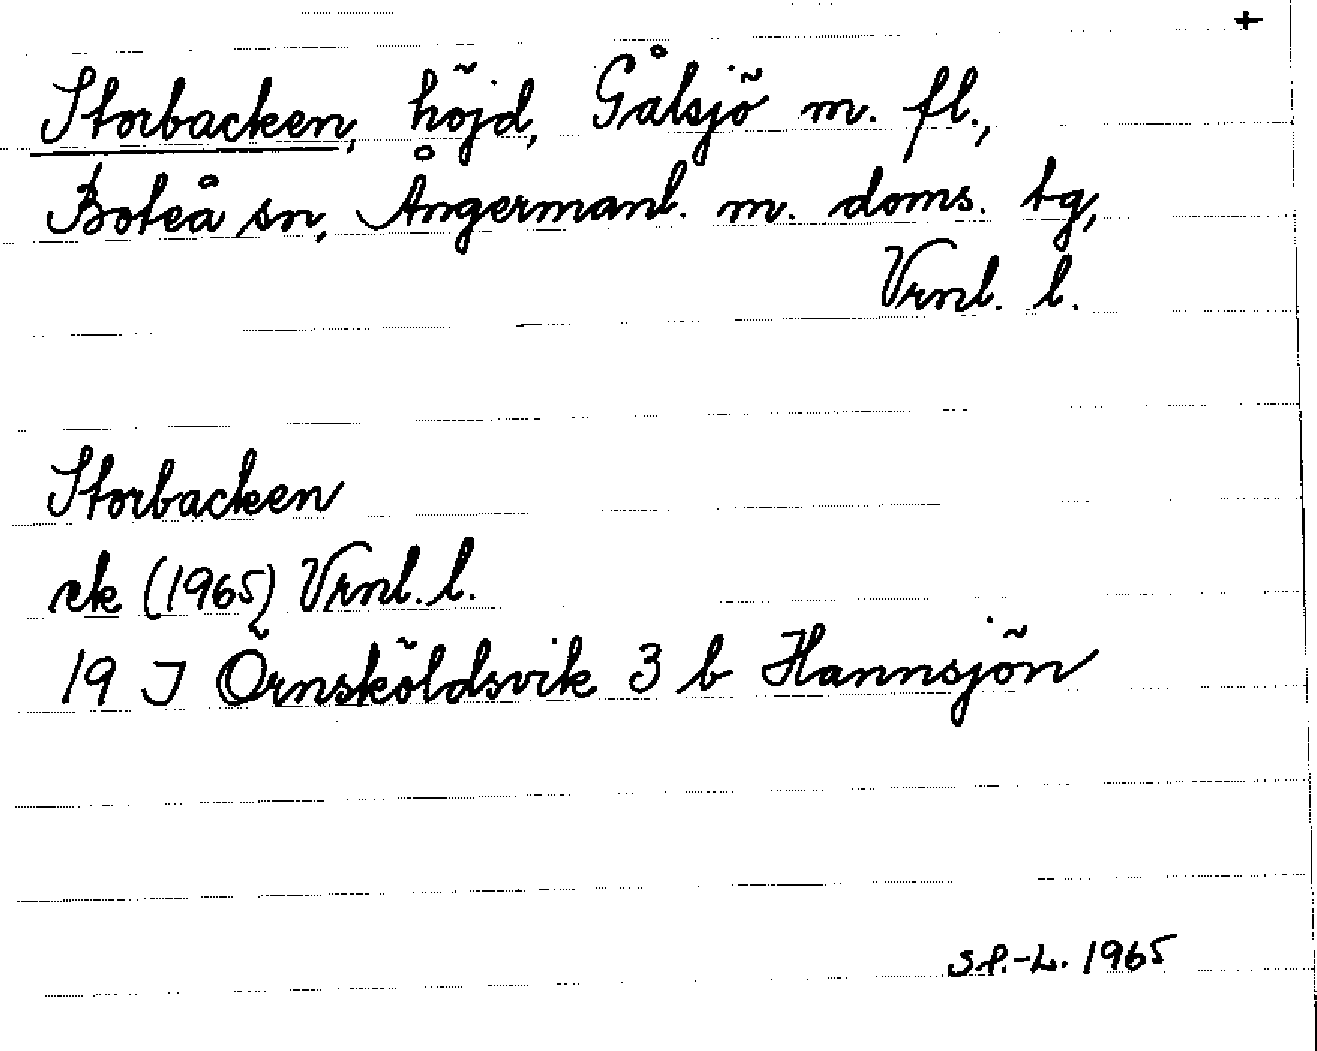 +
Storbacken, höjd, Gålsjö m. fl.,
Boteå sn, Ångermanl. m. doms. tg,
Vrnl. l.
Storbacken
ek (1965) Vrnl. l.
19 J Örnsköldsvik 3 b Hannsjön
S.P.-L. 1965